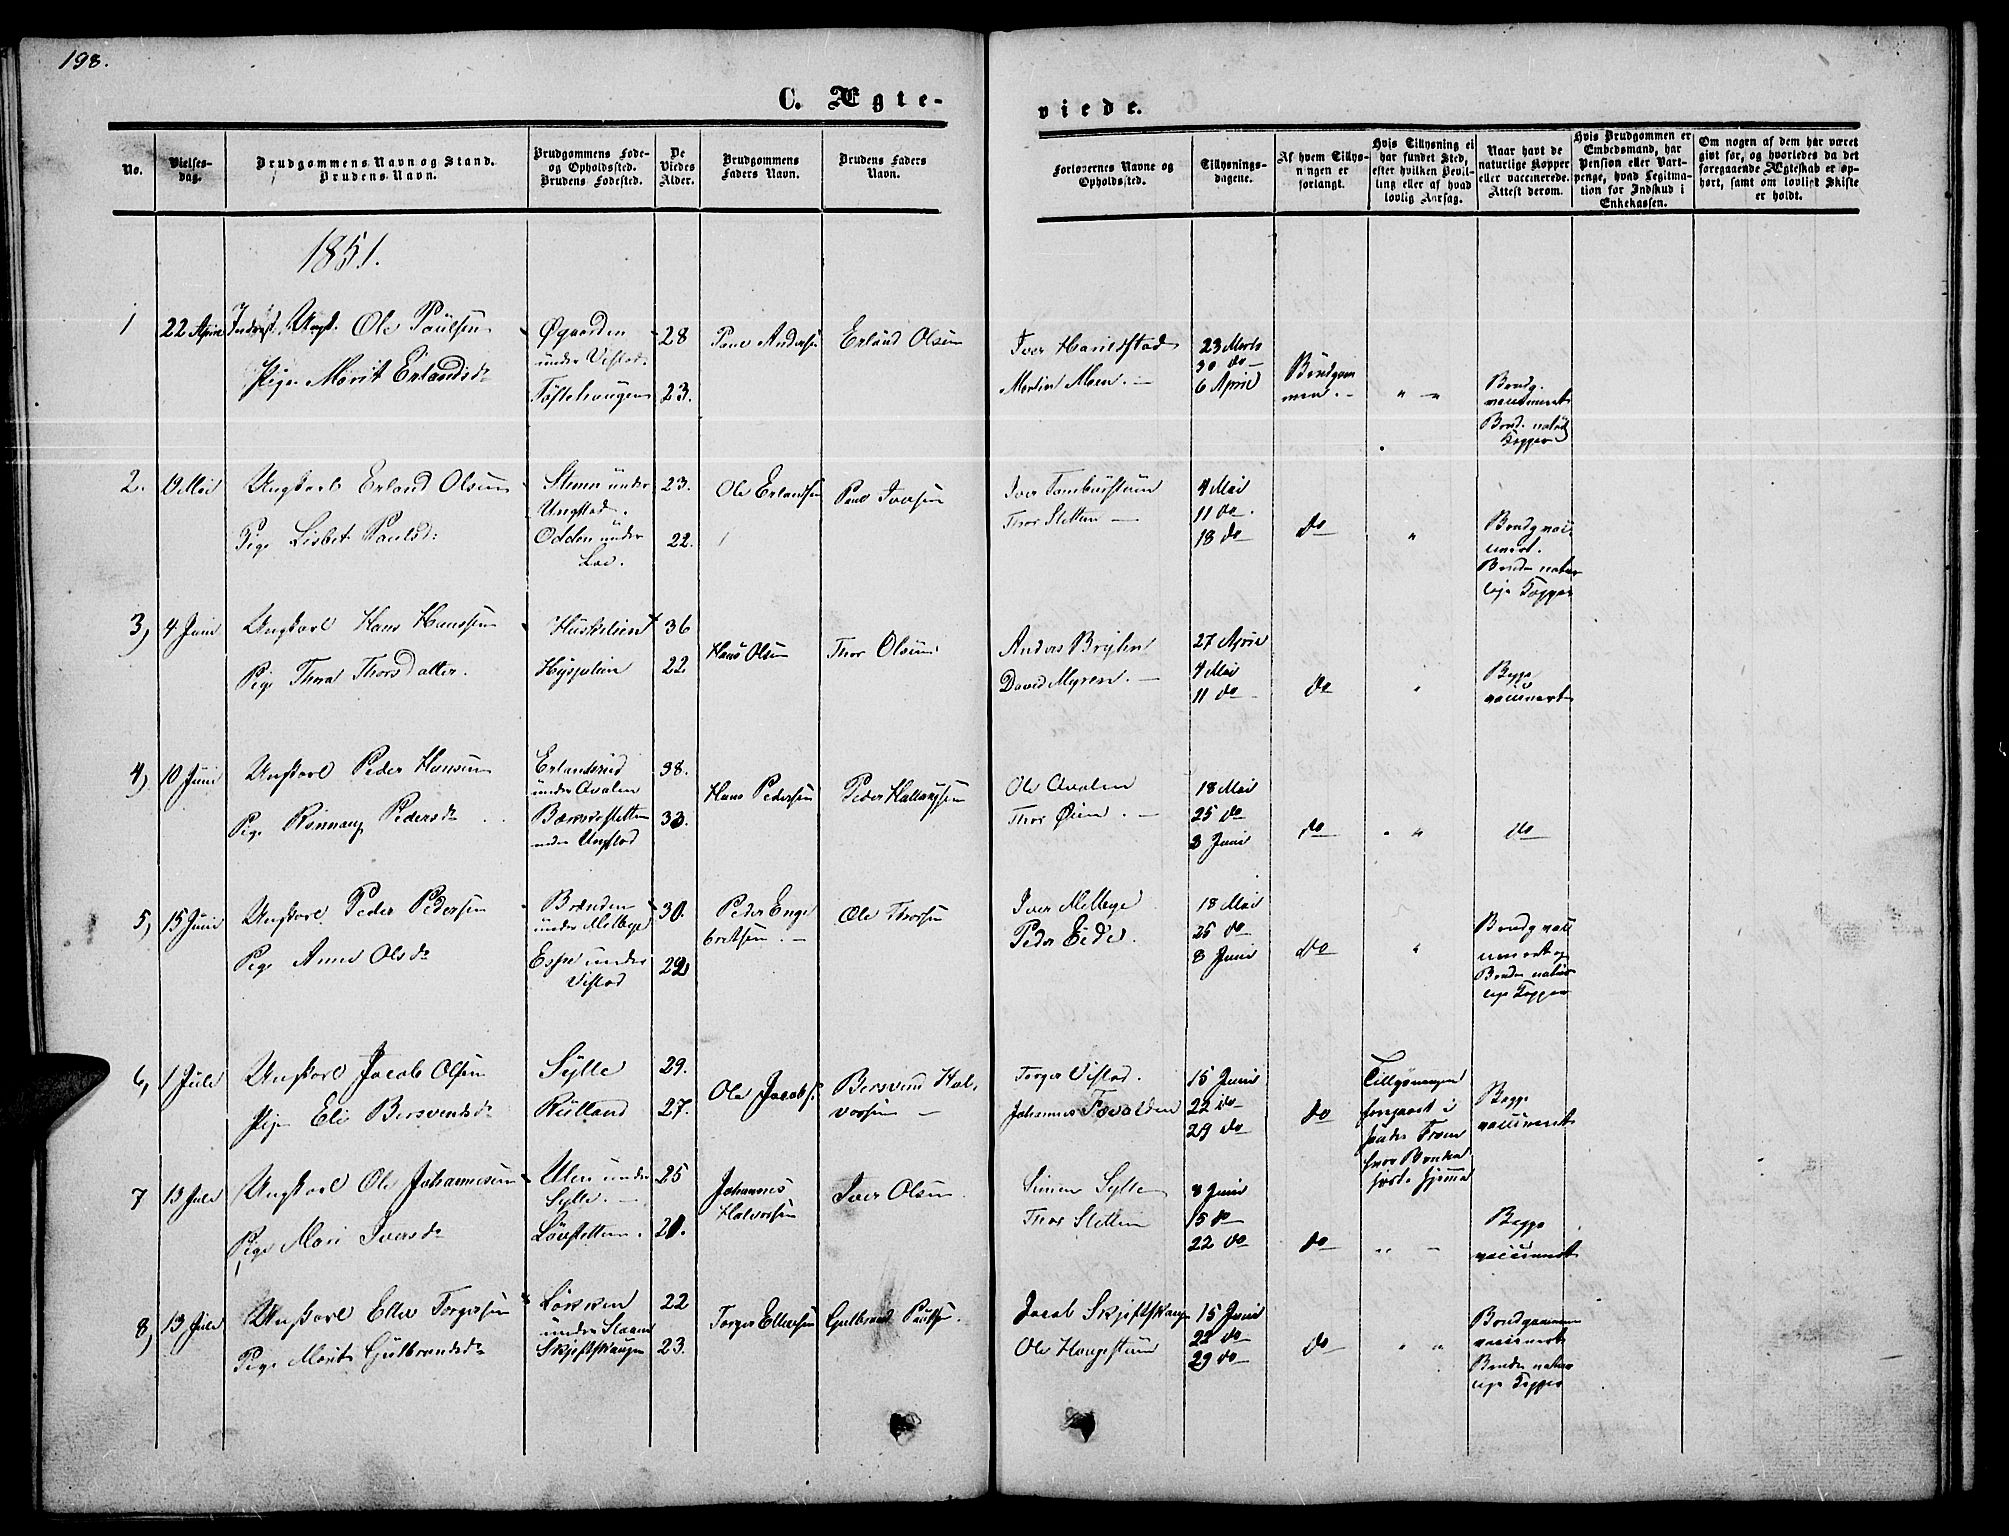 198.
C. Ægte-
viede.
No.
Vielses-
dag.
Brudgommens Navn og Stand.
Brudens Navn.
Brudgommens Føde-
og Opholdssted.
Brudens Fødested.
De
Viedes
Alder.
Brudgommens
Faders Navn.
Brudens Faders
Navn.
Forlovernes Navne og
Opholdssted.
Tillysnings-
dagene.
Af hvem Tillys-
ningen er
forlangt.
Hvis Tillysning ei
har fundet Sted,
efter hvilken Bevil-
ling eller af hvad
lovlig Aarsag.
Naar havt de
naturlige Kopper
eller vaccinerede.
Attest derom.
Hvis Brudgommen er
Embedsmand, har
Pension eller Vart-
penge, hvad Legitima-
tion for Indskud i
Enkekassen.
Om nogen af dem har været
gift før, og hvorledes da det
foregaaende Ægteskab er op-
hørt, samt om lovligt Skifte
er holdt.
1851.
1
22 April
Ungk. Ole Paulsen
Pige Marit Erlandsd
Øgaarden
under Vistad
Toftehaugen
28
23.
Paul Andersen
Erland Olsen
Iver Harildstad
Martin Moen. —
23 Marts
30 do
6 April
Brudgom
men. —
Brudg.
vaccineret
Brud. nat
Kopper
2.
Mai
Ungkarl Erland Olsen
Pige Lisbet Paulsd:
under
Ungstad.
Odden under
Lae.
23.
22.
Ole Erlandsen
Paul Iversen
Iver Tamburstuen
Thor Sletten —
4 Mai
11 do.
18 do
do
Brudg vac
cineret.
Bruden natur
lige Kopper
3,
4 Juni
Ungkarl Hans Hanssen
Pige Thora Thorsdatter.
Huskelien
36
22
Hans Olsen
Thor Olsen
Anders
David Myren. —
27 April
4 Mai
11 do
do
Begge
vaccineret
4,
10 Juni
Ungkarl Peder Hansen
Pige Rønnaug Pedersd
under Qvalen
under Ungstad
38.
33.
Hans Pedersen
Peder
Ole Qvalen
Thor Øien. —
18 Mai
25 do
Juni
do
do
5,
15 Juni
Ungkarl Peder Pedersen
Pige Anne Olsd
Brænden
under Melbye
Espe under
Vistad
30.
29
Peder Enge
bretsen. —
Ole Thorsen
Iver Melbye
Peder Eide.
18 Mai
25 do
8 Juni
do
Brudg vac
cineret og
Bruden natur
lige Kopper
6,
1 Juli
Ungkarl Jacob Olsen
Pige Eli Bersvendsd
Sylle
Rulland
29.
27.
Ole Jacobs.
Bersvend Hal,
vorsen —
Torger Vistad.
Johannes
15 Juni
22 do
29 do
do
Tillysningen
foregaaet i
Fron
hvor Bruden
hjemme
Begge
vaccineret
7
13 Juli
Ungkarl Ole Johannesen
Pige Mari Iversd
Ulen under
Sylle. —
Løvsletten.
25
Johannes
Halvorsen
Iver Olsen.
Simen Sylte
Thor Sletten
8 Juni
15 do
22 do
do
Begge
vaccineret
8,
13 Juli
Ungkarl Ellev Torgersen
Pige Marit Gulbrandsd
Løkken
under Slaaen
Skjeftskaugen
22
23.
Torger Ellevsen
Gulbrand Paulsen.
Jacob Skjeftskaugen
Ole Haugestuen
15 Juni
22 do
29 do
do
Brudgommen
vaccineret
Bruden natur
lige Kopper